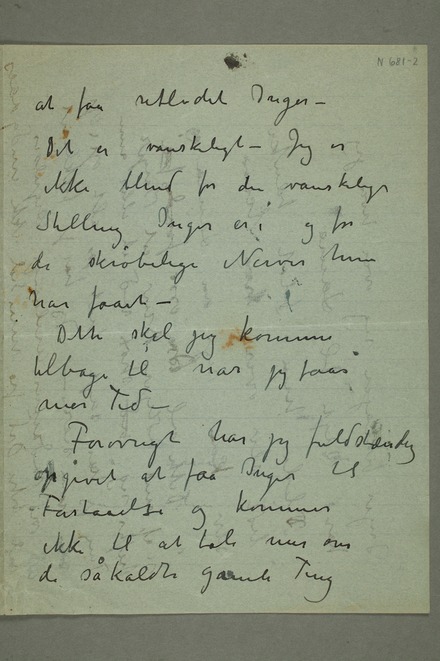 N 681-2
at faa retledet Inger –
Det er vanskeligt – Jeg er
ikke blind for den vanskelige
Stilling Inger er i og for
de skrøbelige Nerver hun
har faaet –
Dette skal jeg komme
tilbage til naar jeg faar
mer Tid –
Forøvrigt har jeg fuldstændig
opgivet at faa Inger til
Forstaaelse og kommer
ikke til at tale mer om
de såkaldte gamle Ting